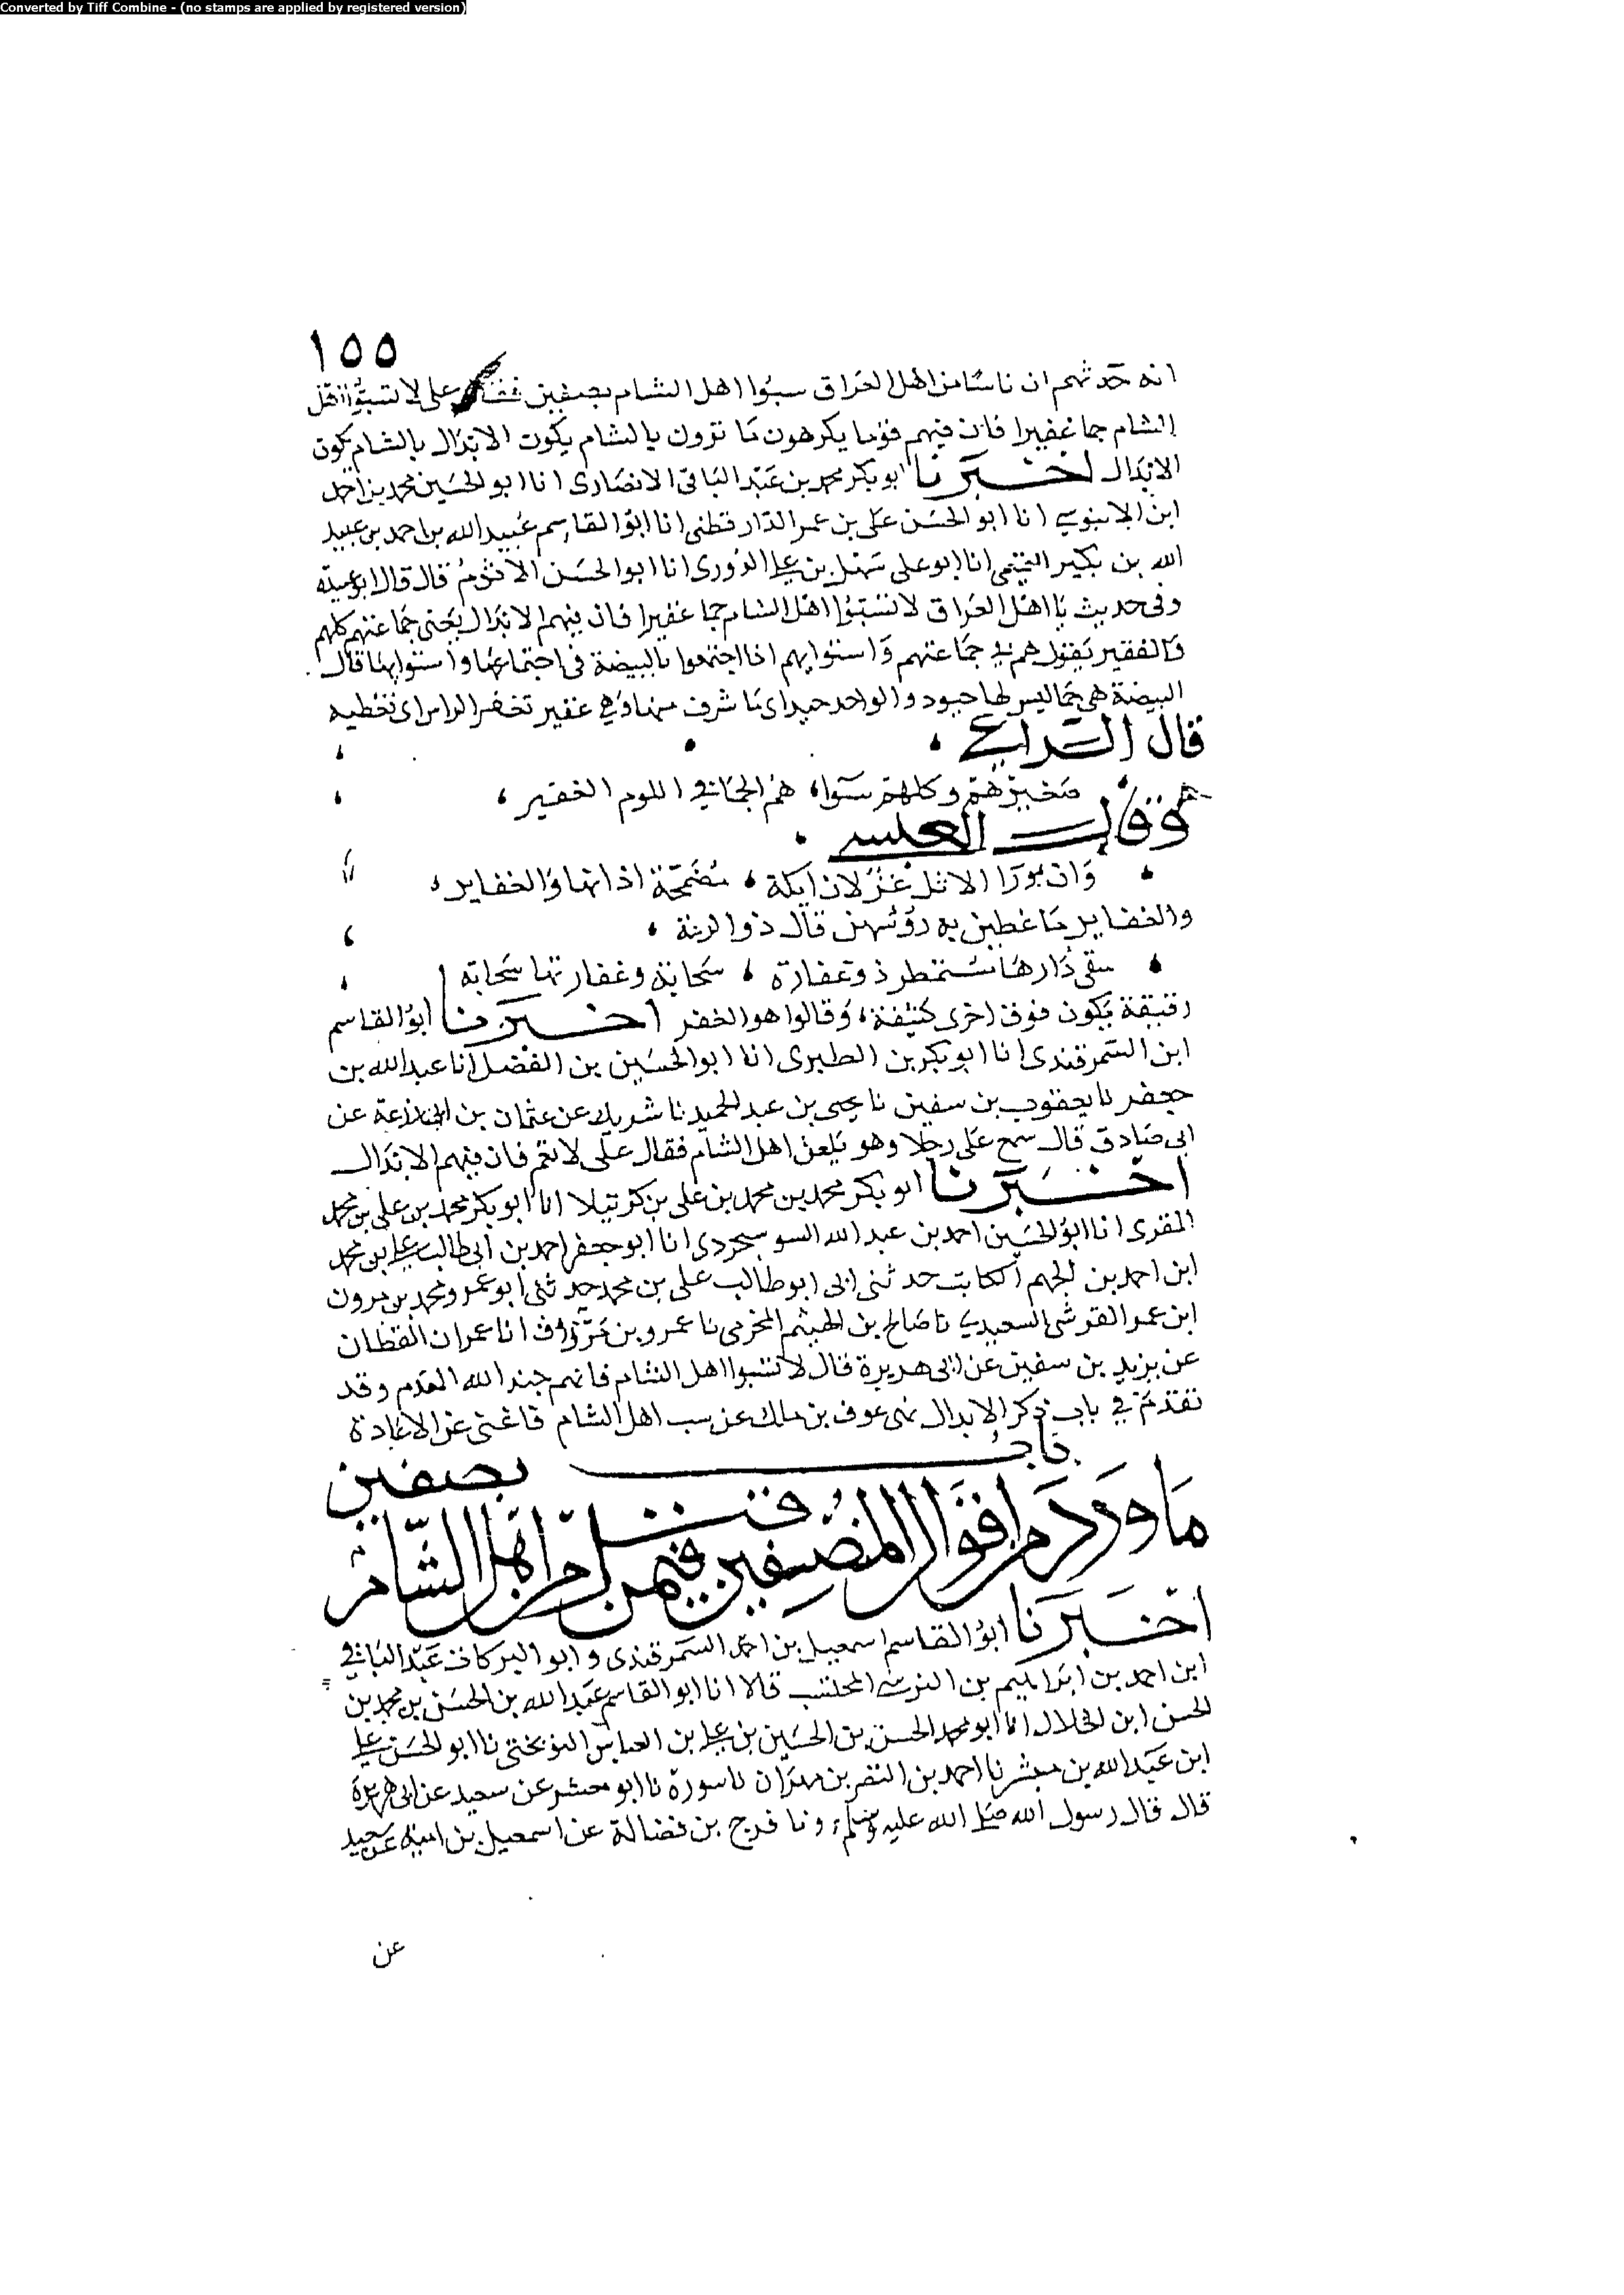 Converted by Tiff Combine - (no stamps are applied by registered version)
١٥٥
انه حدثهم ان ناسا من اهل العراق سبوا اهل الشام بصفين فقال على لا تسبوا اهل
الشام جما غفيرا فان فيهم قوما يكرهون ما ترون بالشام يكون الابدال بالشام يكون
الابدال اخبرنا ابو بكر محمد بن عبد الباقى الانصارى انا ابو الحسين محمد بن احمد
ابن الابنوسي انا ابو الحسن على بن عمر الدارقطنى انا ابو القاسم عبيد الله بن احمد بن عبيد
الله بن بكير التيمى انا ابو على سهل بن على الدورى انا ابو الحسن الاثرم قال قال ابو عبيدة
وفى حديث يا اهل العراق لا تسبوا اهل الشام جما غفيرا فان فيهم الابدال يعنى جماعتهم كلهم
والغفير يقول هم في جماعتهم واستوايهم اذا اجتمعوا بالبيضة فى اجتماعها واستوايها قال
البيضة هى جما ليس لها حيود والواحد حيد اى ما شرف منها وهي غفير تغفر الراس اى تغطيه
قال الراعي
صخبرهم وكلهم سوا، هم الجماء في اللوم الغفير
وقال العبسي
وان بورا الاثل غزلان ايكة، مضمخة اذانها والغفاير
والغفاير ما غطين به رؤسهن قال ذوا لرمة
سقى دارها مستمطر ذو غفارة، سحابة وغفارتها سحابة
رقيقة يكون فوق اخرى كثيفة، وقالوا هو الغفر اخبرنا ابو القاسم
ابن السمرقندى انا ابو بكر بن الطبرى انا ابو الحسين بن الفضل انا عبد الله بن
جعفر نا يعقوب بن سفين نا يحيى بن عبد الحميد نا شريك عن عثمان بن ابى زرعة عن
ابى صادق قال سمع على رجلا وهو يلعن اهل الشام فقال على لا تعم فان فيهم الابدال
اخبرنا ابو بكر محمد بن محمد بن على بن كرتيلا انا ابو بكر محمد بن على بن محمد
المقرى انا ابو الحسين احمد بن عبد الله السوسنجردى انا ابو جعفر احمد بن ابى طالب على بن محمد
ابن احمد بن الجهم الكاتب حدثنى ابى ابو طالب على بن محمد حدثنى ابو عمرو محمد بن مرون
ابن عمر القرشى السعيدي نا صالح بن الهيثم المخرمى نا عمرو بن مرزوق انا عمران القطان
عن يزيد بن سفين عن ابى هريرة قال لا تسبوا اهل الشام فانهم جند الله المقدم وقد
تقدم في باب ذكر الابدال نهى عوف بن ملك عن سب اهل الشام فاغنى عن الاعادة
باب
ما ورد من اقوال المنصفين فيمن قتل من اهل الشام بصفين
اخبرنا ابو القاسم اسمعيل بن احمد السمرقندى وابو البركات عبد الباقي
ابن احمد بن ابراهيم بن النرسي المحتسب قالا انا ابو القاسم عبد الله بن الحسن بن محمد بن
الحسن ابن الخلال انا ابو محمد الحسن بن الحسين بن على بن العباس النوبختى نا ابو الحسن على
ابن عبد الله بن مبشر نا احمد بن النضر بن مهران نا سورة نا ابو معشر عن سعيد عن ابى هريرة
قال قال رسول الله صلى الله عليه وسلم ونا فرج بن فضالة عن اسمعيل بن امية عن سعيد
عن